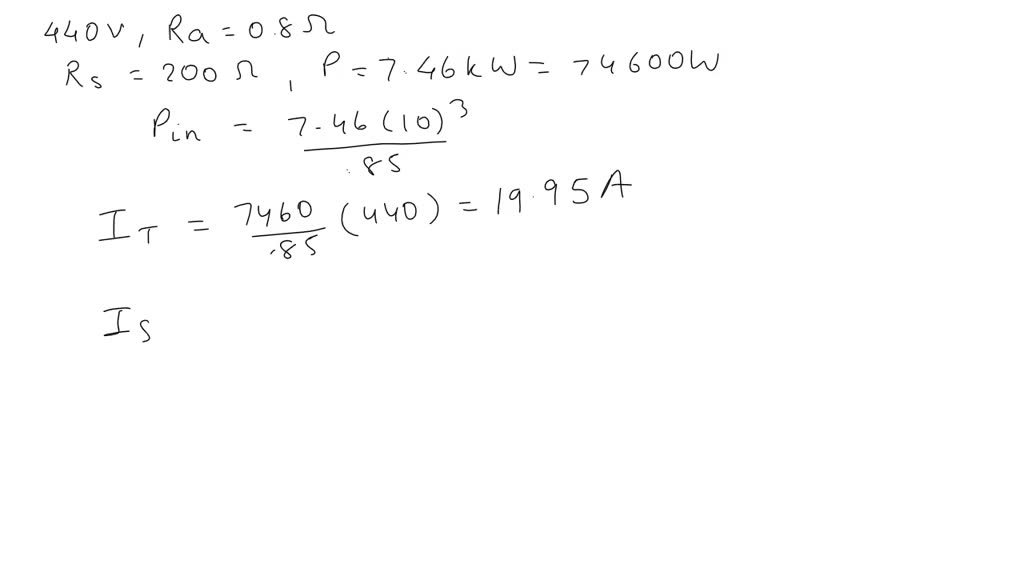 440V, Ra = 0.8Ω
Rs = 200Ω, P = 7.46kW = 74600W
Pin = 7.46(10)^3 / .85
I_T = 7460/.85 (440) = 19.95A
I_s